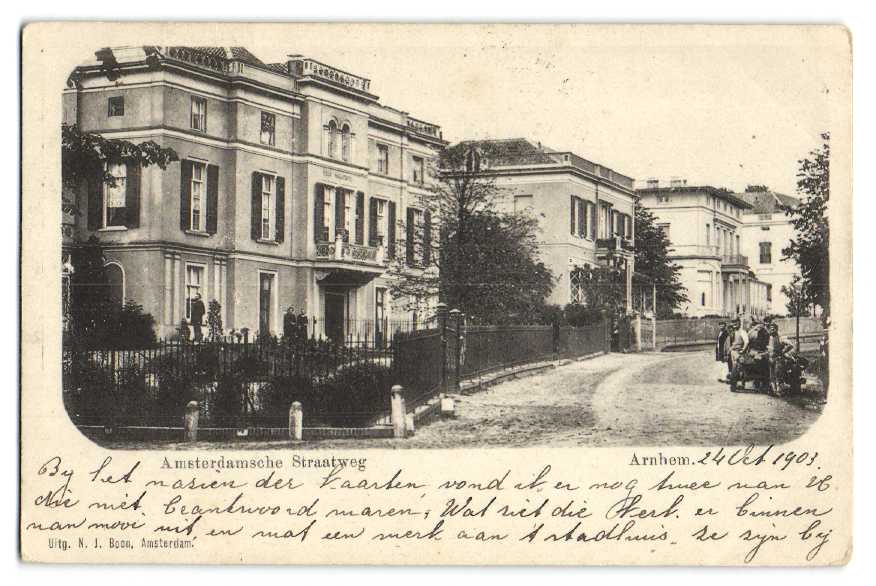 Amsterdamsche Straatweg
Arnhem. 24 Oct 1903.
By het nazien der kaarten, vond ik er nog twee van U.
die niet beantwoord waren; Wat ziet die Kerk er binnen
van mooi uit, en wat een werk aan 't stadhuis. ze zijn bij
Uitg. N. J. Boon, Amsterdam.